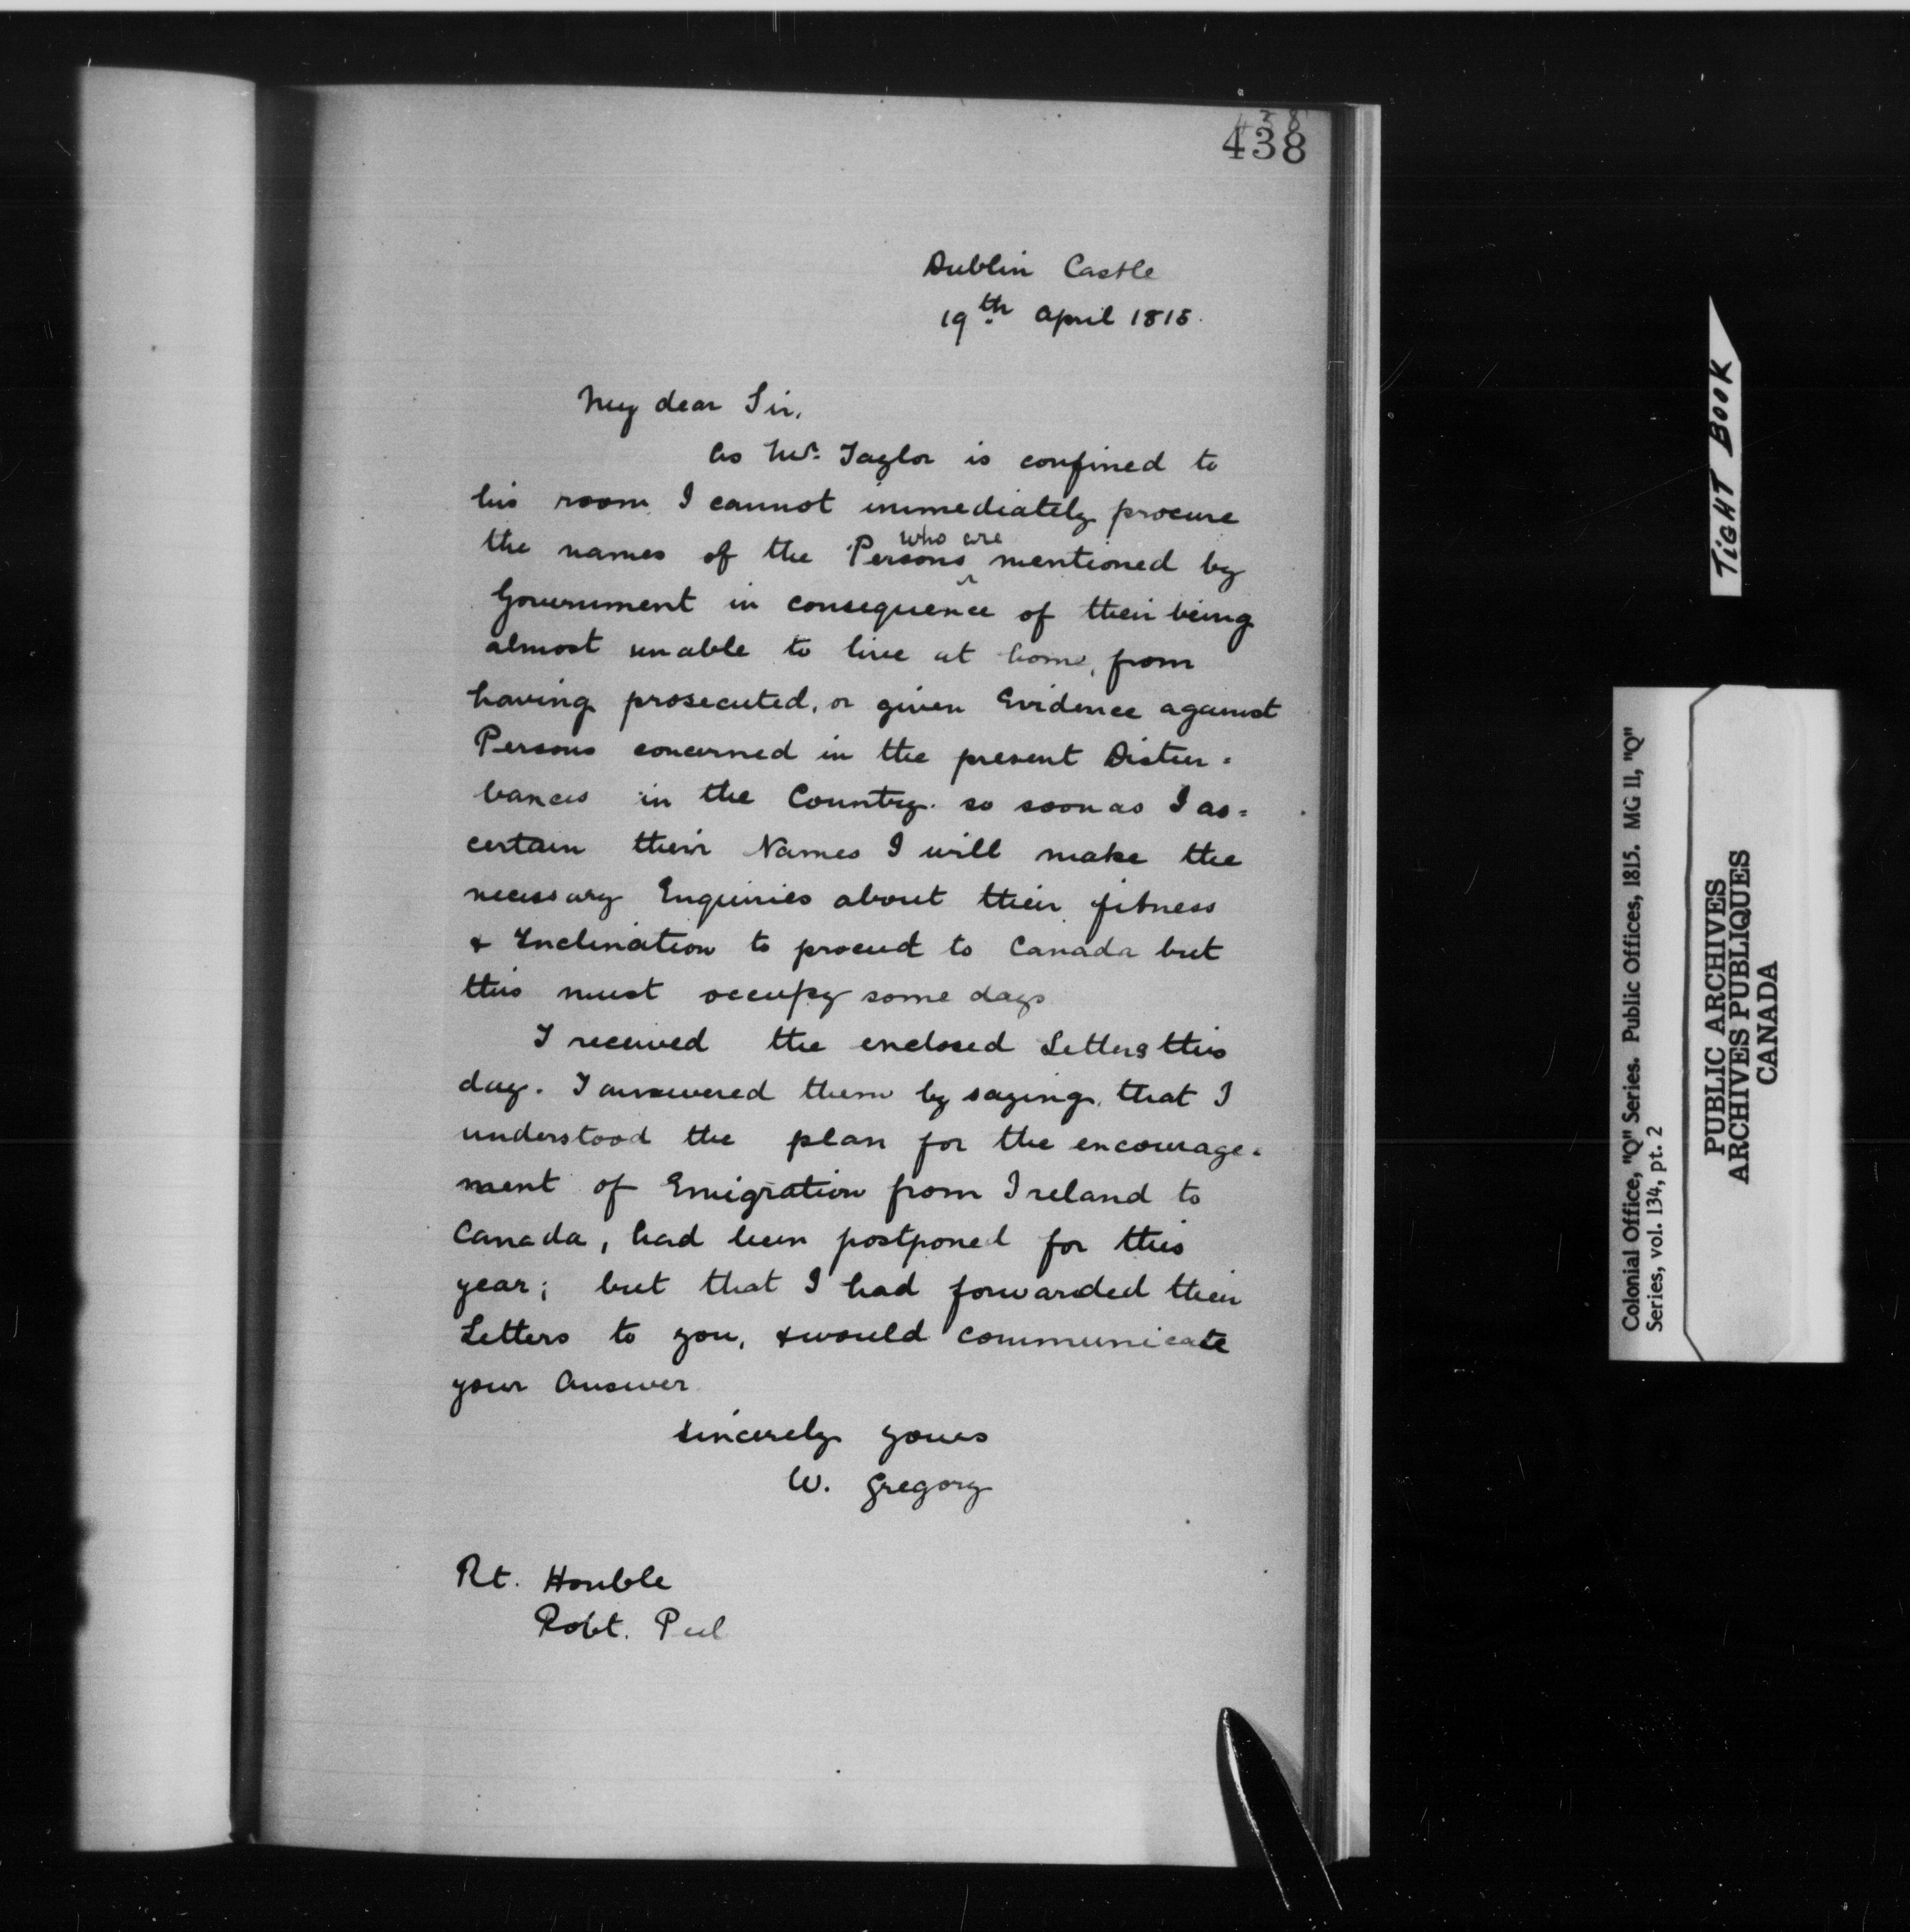 438
438
Dublin Castle
19th April 1815.
My dear Sir,
As Mr. Taylor is confined to
his room I cannot immediately procure
who are
the names of the Persons ^ mentioned by
Government in consequence of their being
almost unable to live at home, from
having prosecuted, or given Evidence against
Persons concerned in the present Distur=
bances in the Country. so soon as I as=
certain their Names I will make the
necessary Enquiries about their fitness
& Inclination to proceed to Canada but
this must occupy some days
I received the enclosed Letters this
day. I answered them by saying, that I
understood the plan for the encourage=
ment of Emigration from Ireland to
Canada, had been postponed for this
year; but that I had forwarded their
Letters to you, & would communicate
your Answer
Sincerely yours
W. Gregory
Rt. Honble
Robt. Peel
TIGHT BOOK
Colonial Office, "Q" Series. Public Offices, 1815. MG 11, "Q"
Series, vol. 134, pt. 2
PUBLIC ARCHIVES
ARCHIVES PUBLIQUES
CANADA